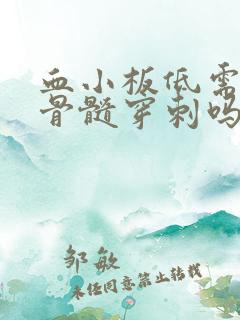 血小板低需
骨髓穿刺吗
邹敏
未经同意禁止转载